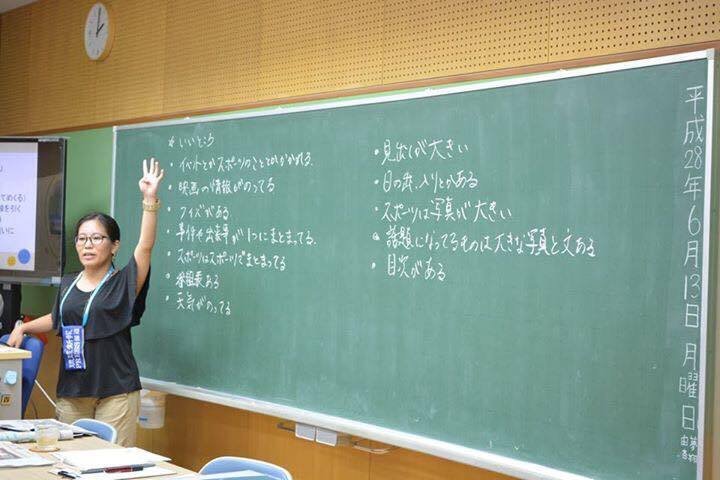 *いいところ
・イベントとかスポーツのこととかがかかれる。
・映画の情報がのってる
・クイズがある
・事件や出来事が1つにまとまってる。
・スポーツはスポーツでまとまってる
・番組表ある
・天気がのってる
・見出しが大きい
・日の出、入りとかある
・スポーツは写真が大きい
・話題になってるものは大きな写真と文ある
・目次がある
平成28年6月13日 月曜日